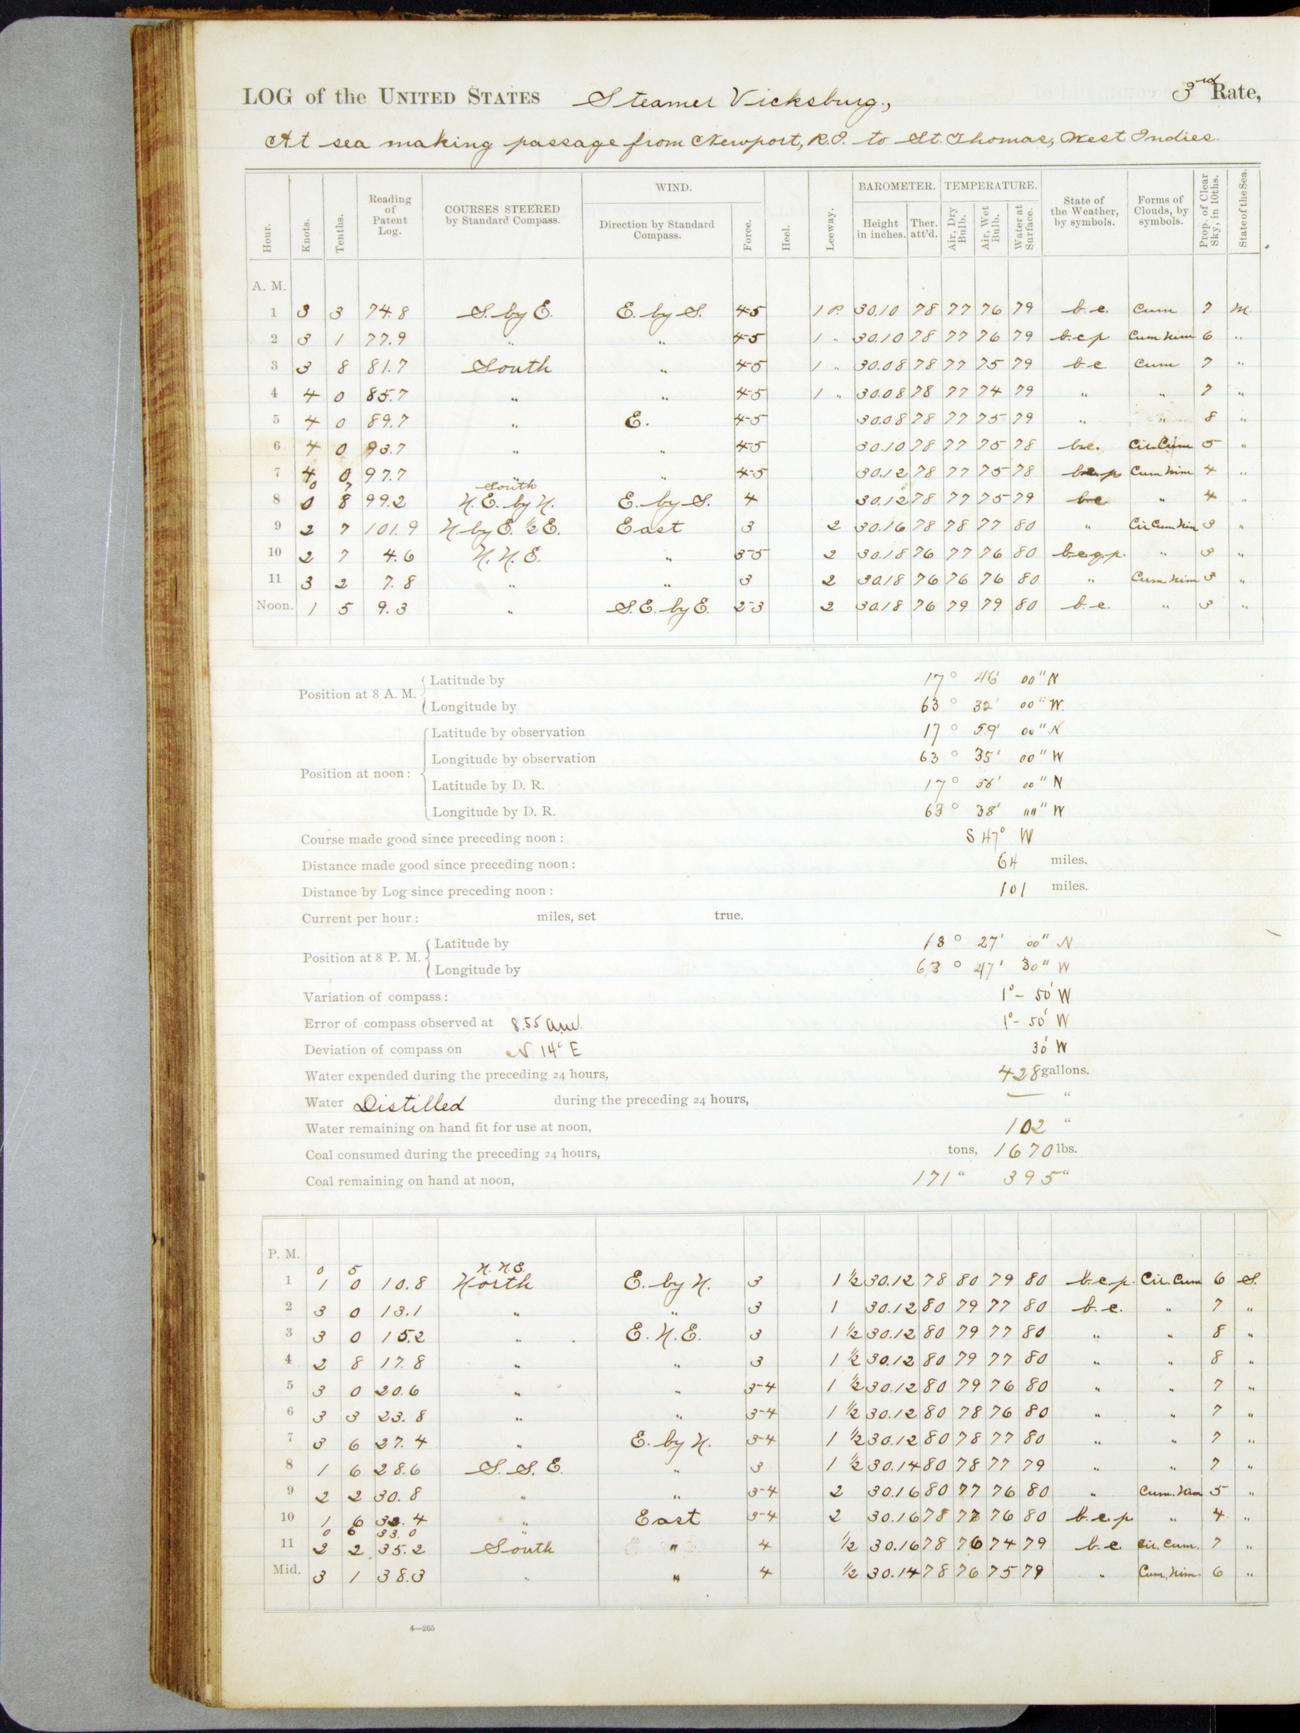 LOG of the UNITED STATES Steamer Vicksburg, 3rd Rate,
At sea making passage from Newport, R.I. to St. Thomas, West Indies.
Hour. Knots. Tenths. Reading of Patent Log. COURSES STEERED by Standard Compass. WIND. Direction by Standard Compass. Force. Heel. Leeway. BAROMETER. Height in inches. Ther. att'd. TEMPERATURE. Air, Dry Bulb. Air, Wet Bulb. Water at Surface. State of the Weather, by symbols. Forms of Clouds, by symbols. Prop. of Clear Sky, in 10ths. State of the Sea.
A. M.
1 3 3 74.8 S. by E. E. by S. 4-5 1 P. 30.10 78 77 76 79 b.c. Cum 7 M.
2 3 1 77.9 " " 4-5 1 " 30.10 78 77 76 79 b.c.p Cum Nim 6 "
3 3 8 81.7 South " 4-5 1 " 30.08 78 77 75 79 b.c Cum 7 "
4 4 0 85.7 " " 4-5 1 " 30.08 78 77 74 79 " " 7 "
5 4 0 89.7 " E. 4-5 30.08 78 77 75 79 " " 8 "
6 4 0 93.7 " " 4-5 30.10 78 77 75 78 b.c. Cir. Cum 5 "
7 4 0 97.7 " " 4-5 30.12 78 77 75 78 b.c.p Cum Nim 4 "
0 7 South
8 0 8 99.2 N.E. by N. E. by S. 4 30.12 78 77 75 79 b.c " 4 "
9 2 7 101.9 N by E. ½ E. East 3 2 30.16 78 78 77 80 " Cir Cum Nim 3 "
10 2 7 4.6 N. N. E. " 3-5 2 30.18 76 77 76 80 b.c.q.p. " 3 "
11 3 2 7.8 " " 3 2 30.18 76 76 76 80 " Cum. Nim 3 "
Noon. 1 5 9.3 " S.E. by E. 2-3 2 30.18 76 79 79 80 b.c. " 3 "
Position at 8 A. M. Latitude by 17° 46' 00" N
Longitude by 63° 32' 00" W.
Position at noon: Latitude by observation 17° 59' 00" N
Longitude by observation 63° 35' 00" W
Latitude by D. R. 17° 56' 00" N
Longitude by D. R. 63° 38' 00" W
Course made good since preceding noon: S 47° W
Distance made good since preceding noon: 64 miles.
Distance by Log since preceding noon: 101 miles.
Current per hour: miles, set true.
Position at 8 P. M. Latitude by 18° 27' 00" N
Longitude by 63° 47' 30" W
Variation of compass: 1°- 50' W
Error of compass observed at 8.55 a.m. 1°- 50' W
Deviation of compass on N 14° E 30' W
Water expended during the preceding 24 hours, 428 gallons.
Water Distilled during the preceding 24 hours, — "
Water remaining on hand fit for use at noon, 102 "
Coal consumed during the preceding 24 hours, tons, 1670 lbs.
Coal remaining on hand at noon, 171 " 395 "
P. M.
0 5 N. N.E.
1 1 0 10.8 North E. by N. 3 1 ½ 30.12 78 80 79 80 b.c.p. Cir. Cum 6 S.
2 3 0 13.1 " " 3 1 30.12 80 79 77 80 b.c. " 7 "
3 3 0 15.2 " E. N. E. 3 1 ½ 30.12 80 79 77 80 " " 8 "
4 2 8 17.8 " " 3 1 ½ 30.12 80 79 77 80 " " 8 "
5 3 0 20.6 " " 3-4 1 ½ 30.12 80 79 76 80 " " 7 "
6 3 3 23.8 " " 3-4 1 ½ 30.12 80 78 76 80 " " 7 "
7 3 6 27.4 " E. by N. 3-4 1 ½ 30.12 80 78 77 80 " " 7 "
8 1 6 28.6 S. S. E. " 3 1 ½ 30.14 80 78 77 79 " " 7 "
9 2 2 30.8 " " 3-4 2 30.16 80 77 76 80 " Cum. Nim 5 "
10 1 6 32.4 " East 3-4 2 30.16 78 77 76 80 b.c.p " 4 "
0 6 33.0 "
11 2 2 35.2 South " 4 ½ 30.16 78 76 74 79 b.c. Cir. Cum. 7 "
Mid. 3 1 38.3 " " 4 ½ 30.14 78 76 75 79 " Cum. Nim. 6 "
4—265